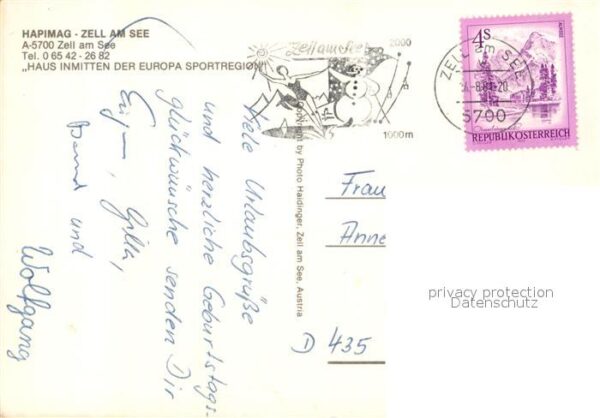 HAPIMAG - ZELL AM SEE
A-5700 Zell am See
Tel. 0 65 42 - 26 82
„HAUS INMITTEN DER EUROPA SPORTREGION"
Viele Urlaubsgrüße
und herzliche Geburtstags-
glückwünsche senden Dir
Gilla,
Bernd und
Wolfgang
Copyright by Photo Haidinger, Zell am See, Austria
Zell am See
2000
1000m
ZELL am SEE
5700
4S
REPUBLIK ÖSTERREICH
Frau
Anne
D 435
privacy protection
Datenschutz